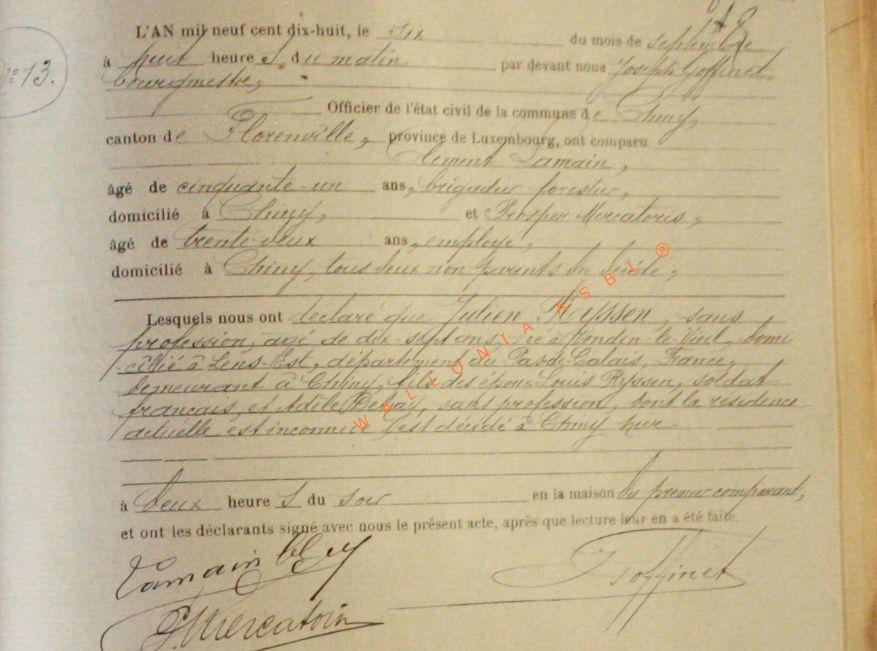 N° 13.
L'AN mil neuf cent dix-huit, le six du mois de septembre
à huit heures du matin par devant nous Joseph Goffinet,
bourgmestre,
Officier de l'état civil de la commune de Chiny,
canton de Florenville, province de Luxembourg, ont comparu
Clément Lamain,
âgé de cinquante-un ans, brigadier forestier,
domicilié à Chiny, et Prosper Mercatoris,
âgé de trente-deux ans, employé,
domicilié à Chiny, tous deux non parents du décédé,
Lesquels nous ont déclaré que Julien Ryssen, sans
profession, agé de dix-sept ans, né à Vendin-le-Vieil, domi-
cilié à Lens-Est, département du Pas-de-Calais, France,
demeurant à Chiny, fils des époux Louis Ryssen, soldat
français, et Adèle sans profession, dont la résidence
actuelle est inconnue est décédé à Chiny hier
à deux heures du soir en la maison du premier comparant,
et ont les déclarants signé avec nous le présent acte, après que lecture leur en a été faite.
Lamain
J Goffinet
P. Mercatoris
WALLONIA ASBL ®